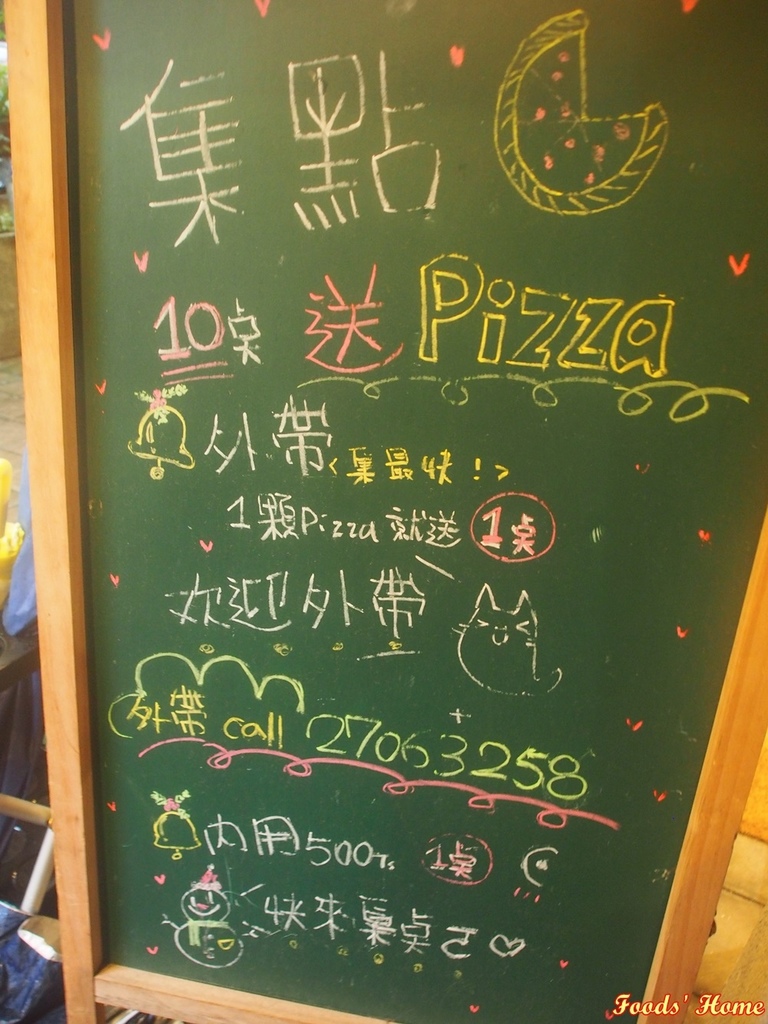 集點
10点 送 Pizza
外帶 <集最快!>
1顆Pizza就送 1点
歡迎外帶
外帶 call 27063258
內用500元 1点
快來集点ㄛ♡
Foods' Home